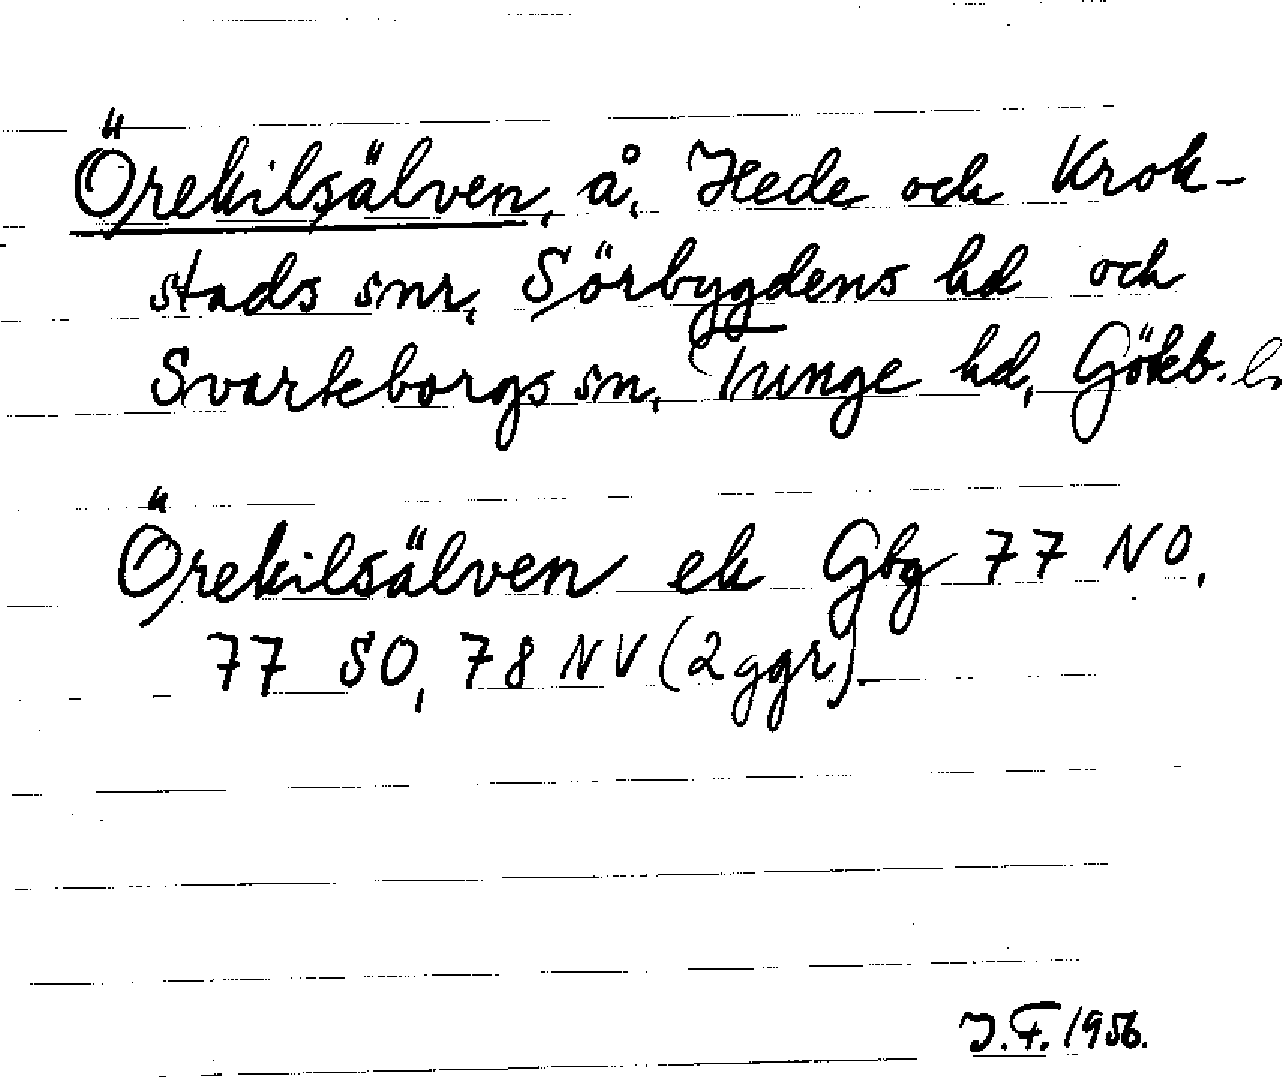 Örekilsälven, å, Hede och Krok-
stads snr, Sörbygdens hd och
Svarteborgs sn, Tunge hd, Gökb. l.
Örekilsälven ek Gbg 77 NO,
77 SO, 78 NV (2 ggr).
J.F. 1956.